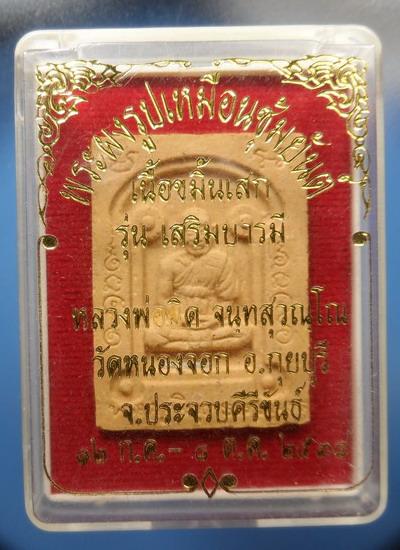 พระผงรูปเหมือนซุ้มยันต์
เนื้อขมิ้นเสก
รุ่น เสริมบารมี
หลวงพ่อมิด จนฺทสุวณฺโณ
วัดหนองจอก อ.กุยบุรี
จ.ประจวบคีรีขันธ์
๑๒ ก.ค.- ๘ ต.ค. ๒๕๓๘